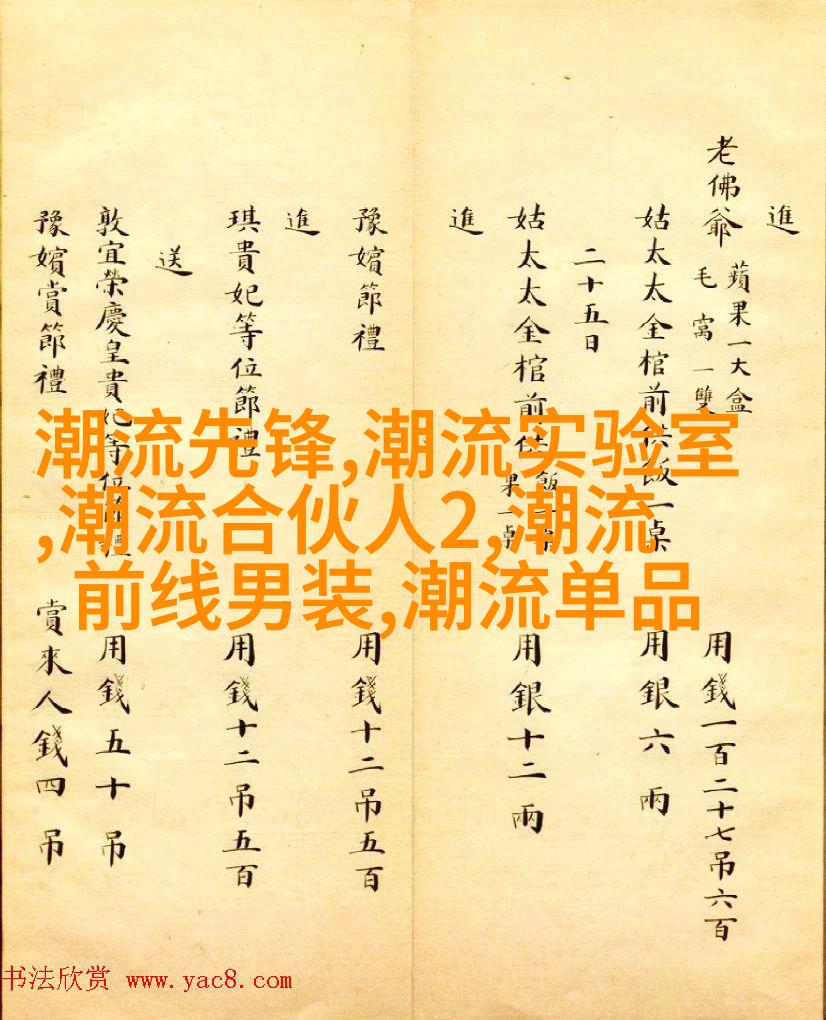 進
老佛爺 蘋果一大盒 毛窩一雙 用錢一百二十七吊六百
姑太太金棺前供飯一桌 用銀六兩
二十五日
姑太太金棺前供飯一桌 果一桌 用銀十二兩
進
豫嬪節禮 用錢十二吊五百
進
琪貴妃等位節禮 用錢十二吊五百
送
敦宜榮慶皇貴妃等位節禮 用錢五十吊
豫嬪賞節禮 賞來人錢四吊
潮流先锋,潮流实验室
,潮流合伙人2,潮流
前线男装,潮流单品
书法欣赏 www.yac8.com